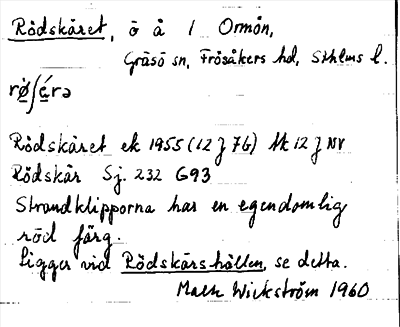 Rödskäret, ö å / Ormön,
Gräsö sn, Frösåkers hd, Sthlms l.
Rödskäret ek 1955 (12 J 7G) Mk 12 J NV
Rödskär Sj. 232 G93
Strandklipporna har en egendomlig
röd färg.
Ligger vid Rödskärshällen, se detta.
Wickström 1960